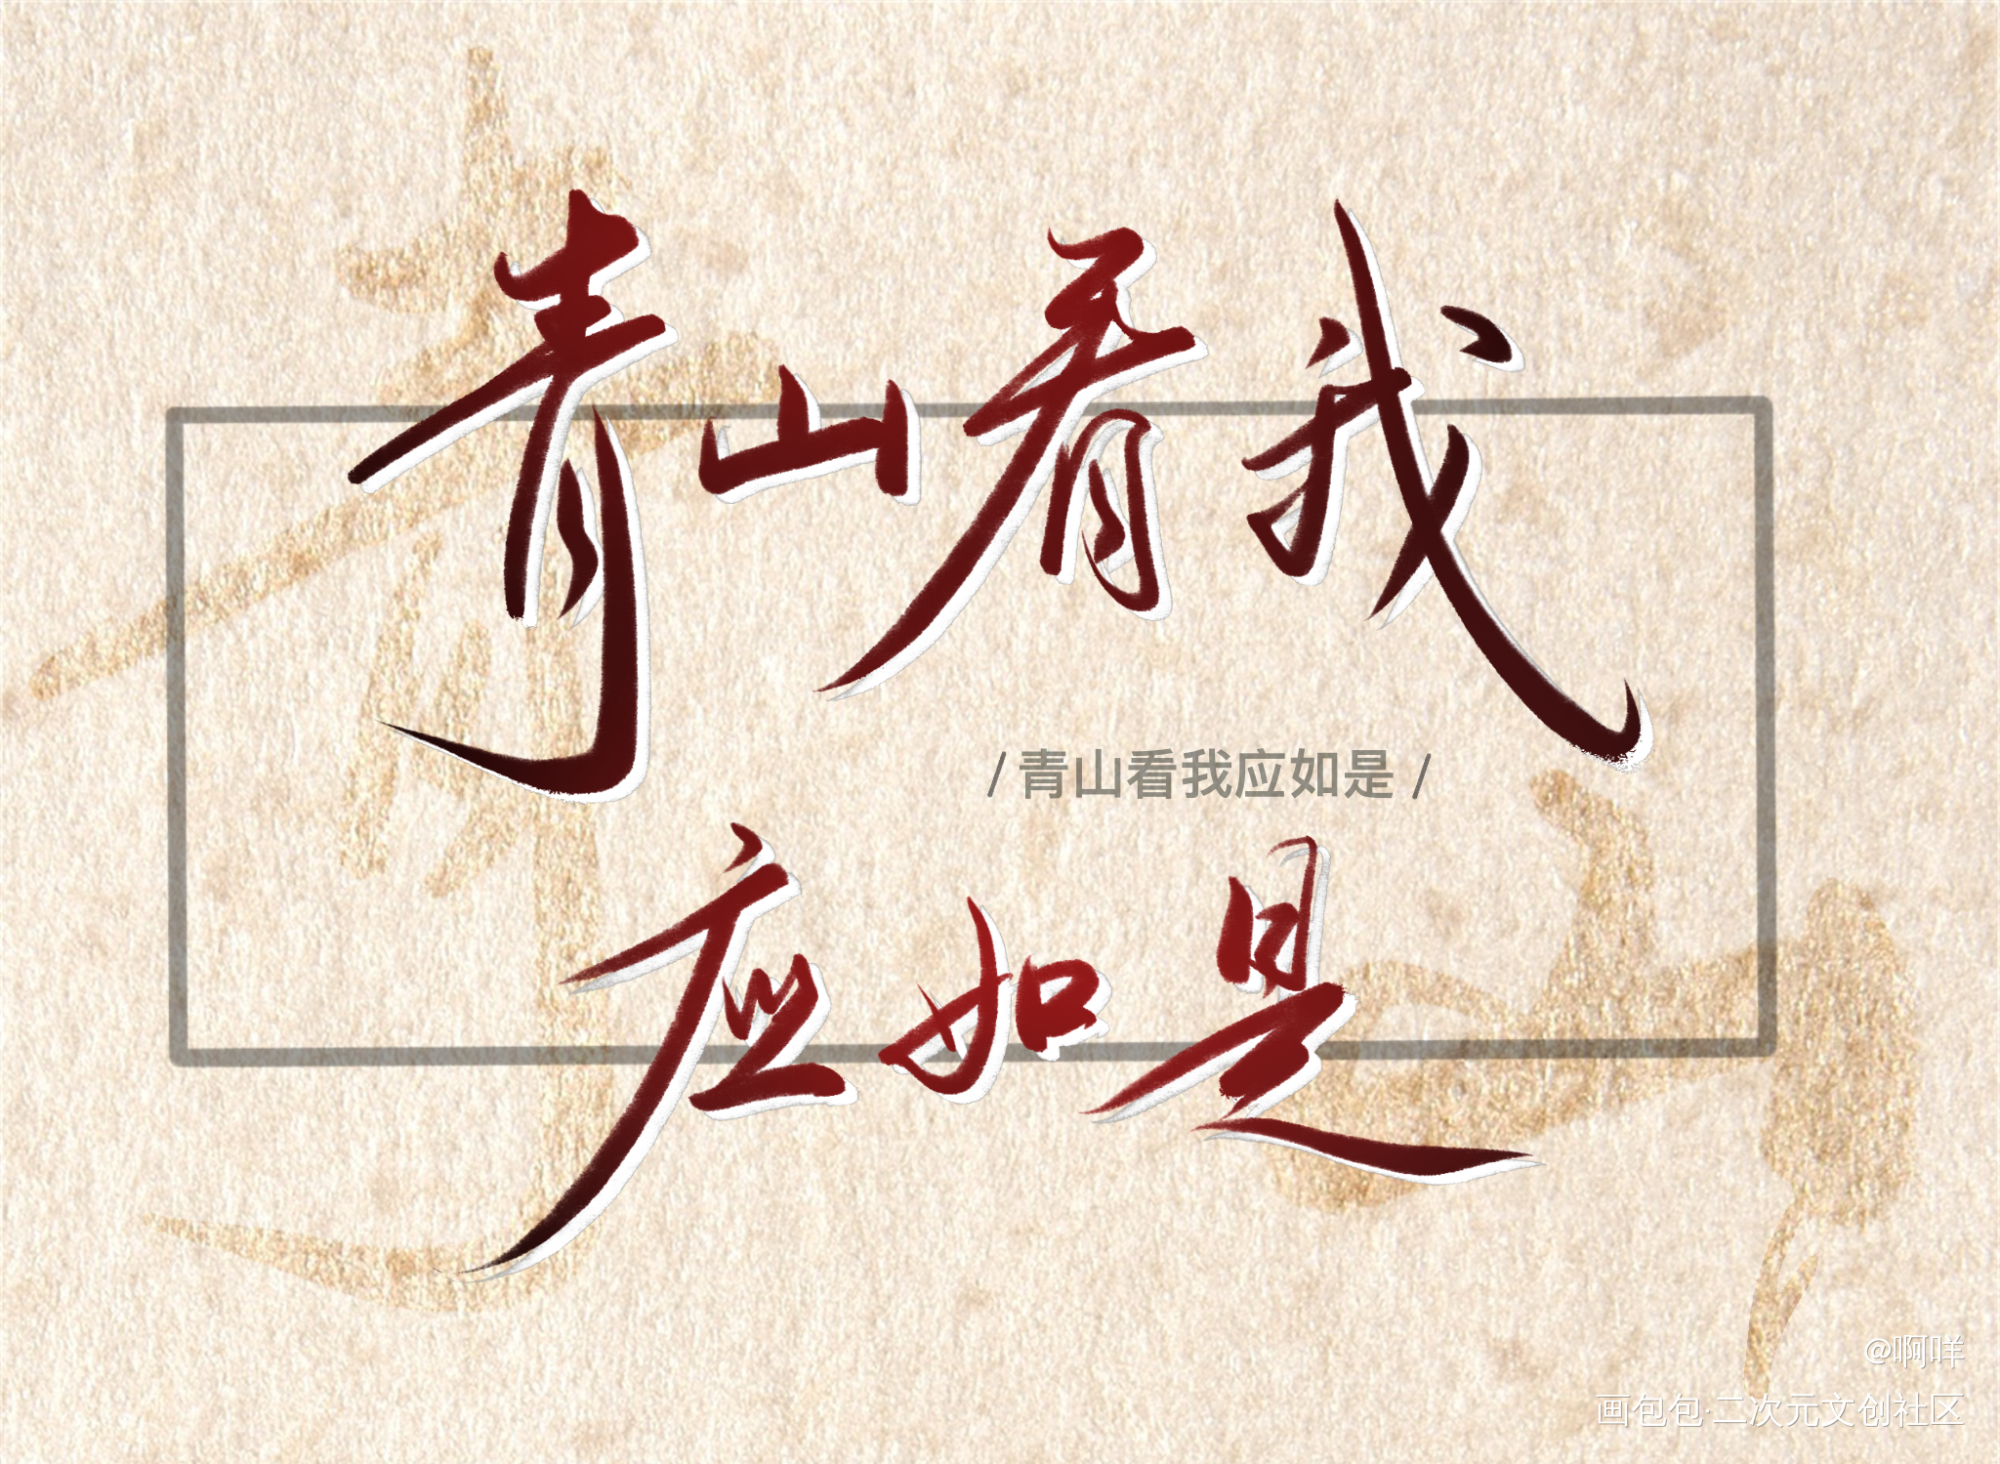 青山看我
/ 青山看我应如是 /
应如是
@啊咩
画包包·二次元文创社区